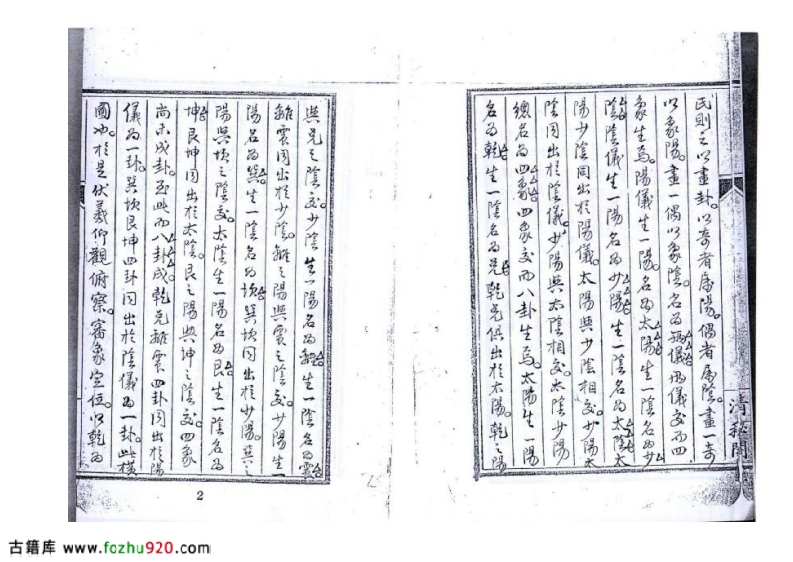 民則之以畫卦。以奇者屬陽。偶者屬陰。畫一奇
以象陽。畫一偶以象陰。名為兩儀。兩儀交而四
象生焉。陽儀生一陽。名為太陽。生一陰名為少
陰。陰儀生一陽名為少陽。生一陰名為太陰。太
陽少陰同出於陽儀。太陽與少陰相交。少陽太
陰同出於陰儀。少陽與太陰相交。太陰少陽
總名為四象。四象交而八卦生焉。太陽生一陽
名為乾。生一陰名為兌。乾兌俱出於太陽。乾之陽
清秘閣
與兌之陰交。少陰生一陽名為離。生一陰名為震。
離震同出於少陰。離之陽與震之陰交。少陽生一
陽名為巽。生一陰名為坎。巽坎同出於少陽。巽之
陽與坎之陰交。太陰生一陽名為艮。生一陰名為
坤。艮坤同出於太陰。艮之陽與坤之陰交。四象
尚未成卦。至此而八卦成。乾兌離震四卦同出於陽
儀為一卦。巽坎艮坤四卦同出於陰儀為一卦。此橫
圖也。於是伏羲仰觀俯察。審象定位。以乾為
2
古籍库 www.fozhu920.com